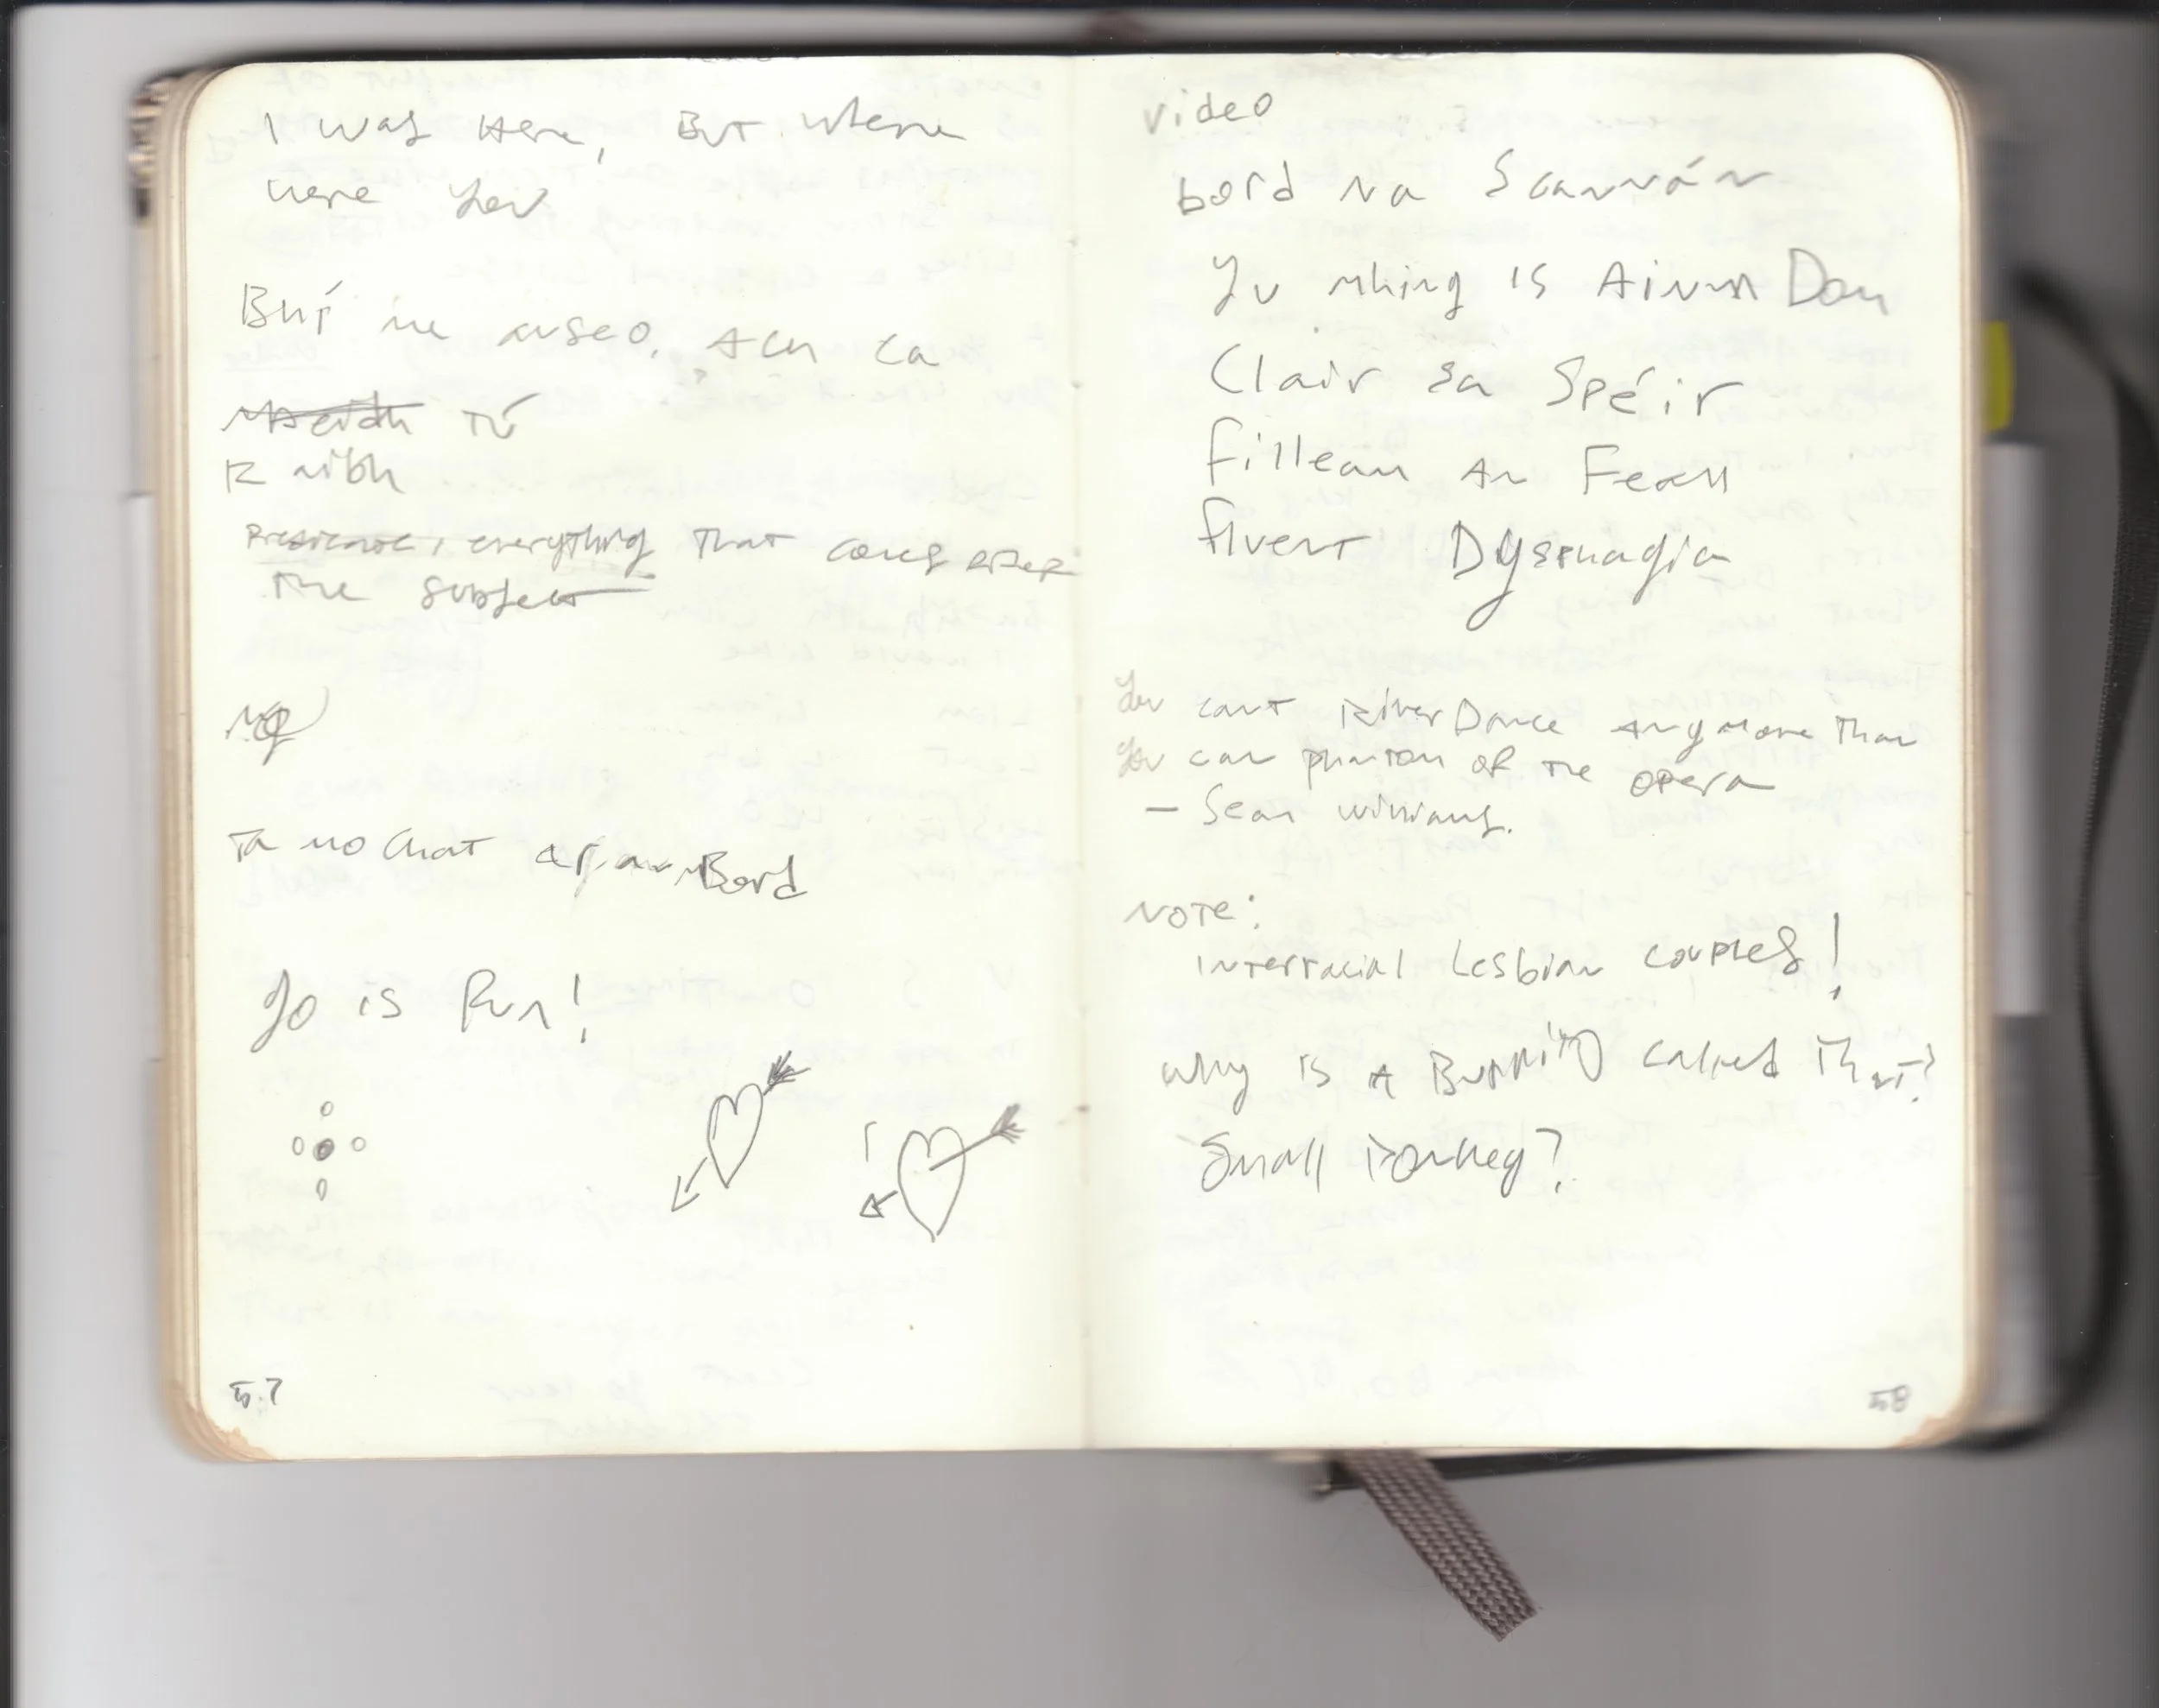 I was Here, But where
were you
Bhí me anseo, Ach ca
tú
raibh
Predicate, everything that comes after
the subject
Ta mo Chat ar an mBord
Go is Fun!
57
video
bord na Scannán
Yu Ming is Ainm Dom
Clair sa Spéir
Filleann an Feall
Fluent Dysphagia
You cant RiverDance Anymore Than
You can phantom of the opera
— Sean Williams.
NOTE:
Interracial Lesbian couples!
why is A Burrito called That?
Small Donkey?
58